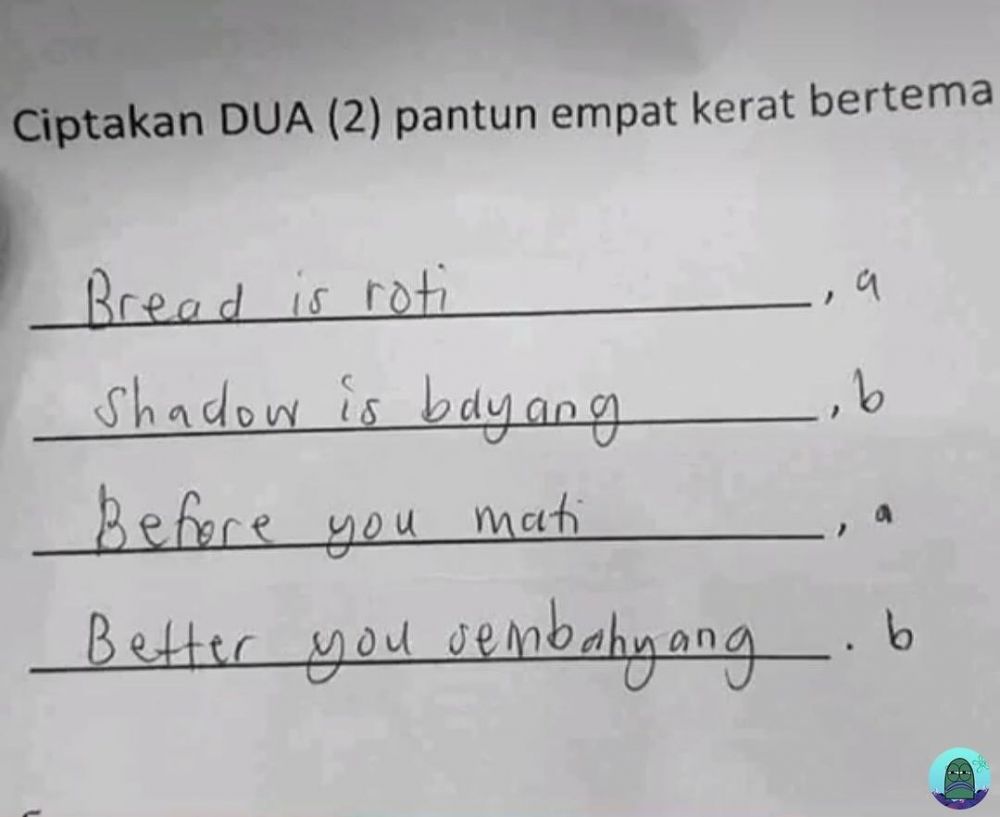 Ciptakan DUA (2) pantun empat kerat bertema
Bread is roti , a
Shadow is bayang , b
Before you mati , a
Better you sembahyang . b